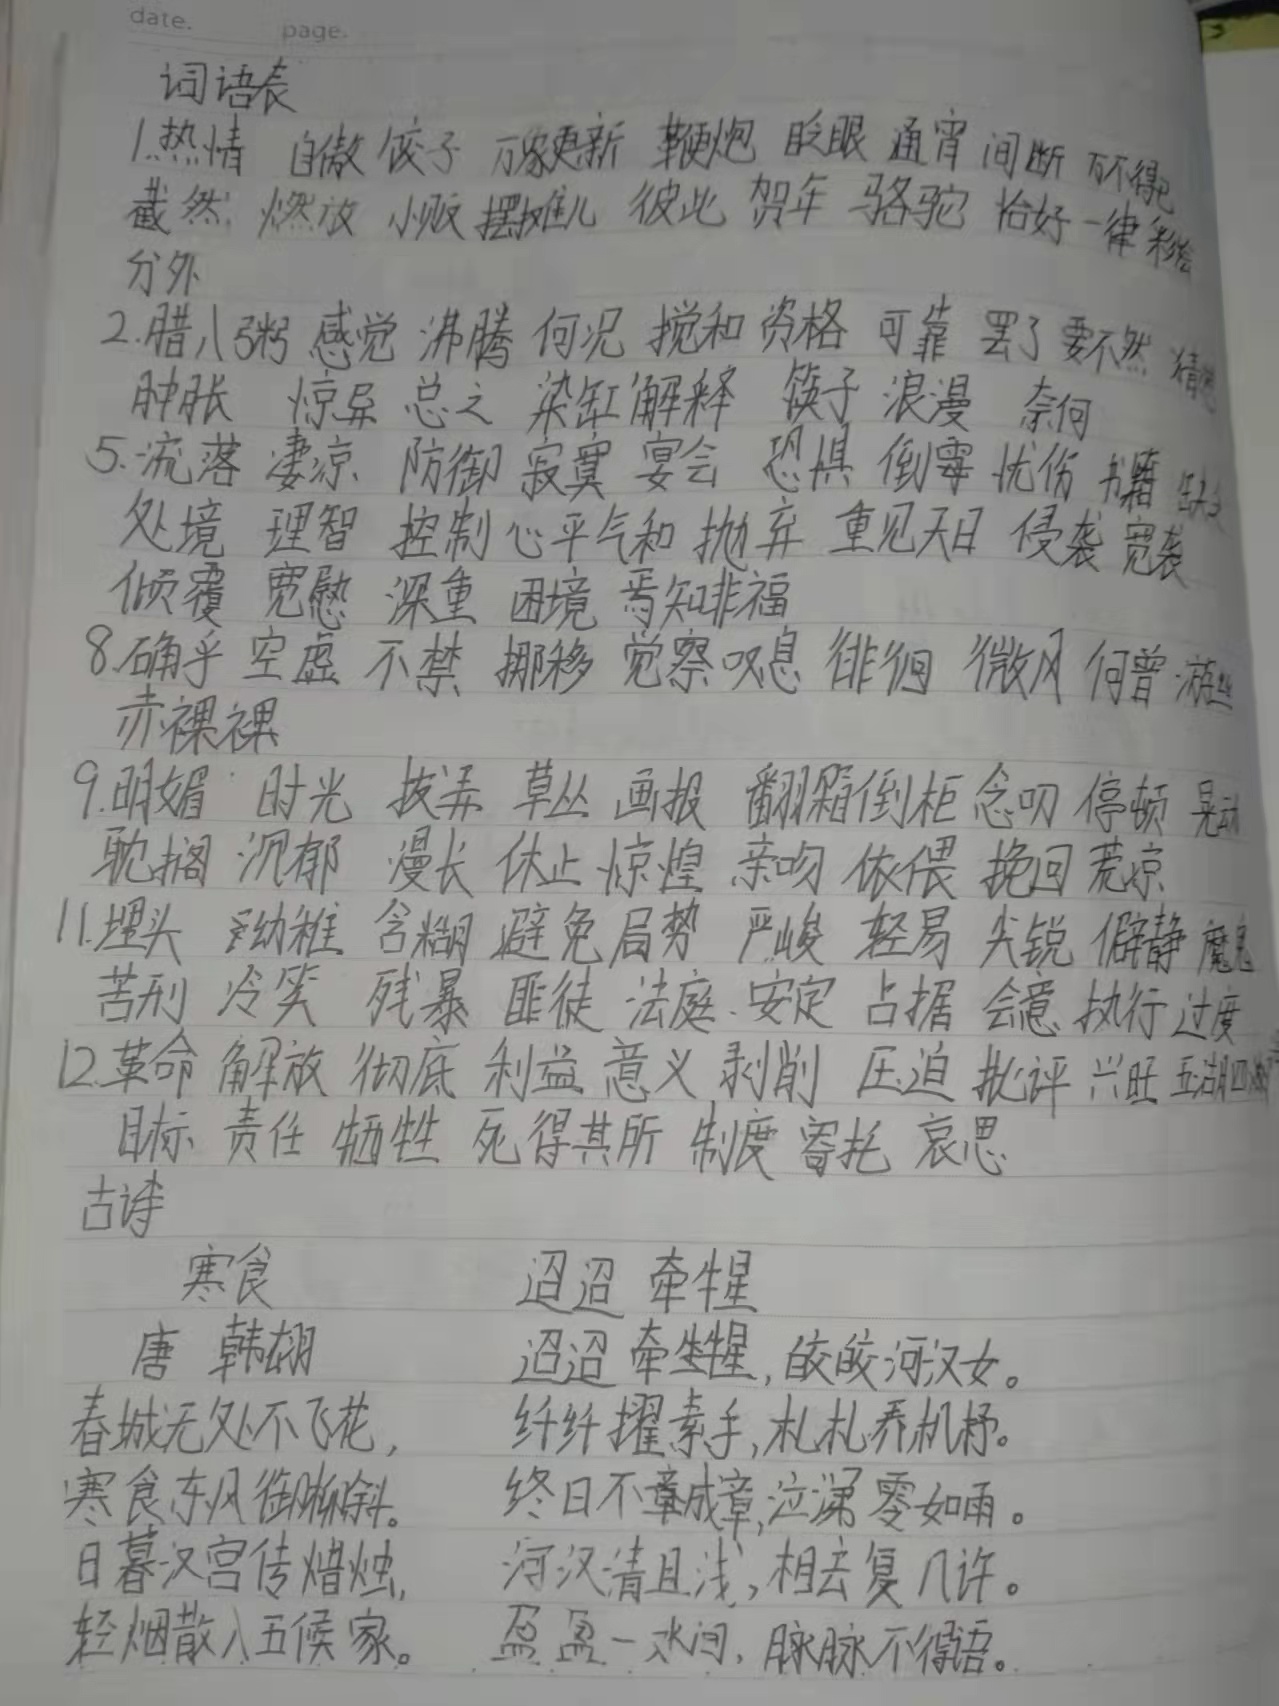 date.
page.
词语表
1.热情 自傲 饺子 万象更新 鞭炮 眨眼 通宵 间断 万不得已
截然 燃放 小贩 摆摊儿 彼此 贺年 骆驼 恰好 一律 彩绘
分外
2.腊八粥 感觉 沸腾 何况 搅和 资格 可靠 罢了 要不然 猜想
肿胀 惊异 总之 染缸 解释 筷子 浪漫 奈何
5.流落 凄凉 防御 寂寞 宴会 恐惧 倒霉 忧伤 书籍 缺乏
处境 理智 控制 心平气和 抛弃 重见天日 侵袭 宽袭
倾覆 宽慰 深重 困境 焉知非福
8.确乎 空虚 不禁 挪移 觉察 叹息 徘徊 微风 何曾 游丝
赤裸裸
9.明媚 时光 拨弄 草丛 画报 翻箱倒柜 念叨 停顿 晃动
耽搁 沉郁 漫长 休止 惊惶 亲吻 依偎 挽回 荒凉
11.埋头 幼稚 含糊 避免 局势 严峻 轻易 尖锐 僻静 魔鬼
苦刑 冷笑 残暴 匪徒 法庭 安定 占据 会意 执行 过度
12.革命 解放 彻底 利益 意义 剥削 压迫 批评 兴旺 五湖四海
目标 责任 牺牲 死得其所 制度 寄托 哀思
古诗
寒食 迢迢 牵牛星
唐 韩翃 迢迢 牵牛星,皎皎河汉女。
春城无处不飞花, 纤纤擢素手,札札弄机杼。
寒食东风御柳斜。 终日不成章,泣涕零如雨。
日暮汉宫传蜡烛, 河汉清且浅,相去复几许。
轻烟散入五候家。 盈盈一水间,脉脉不得语。